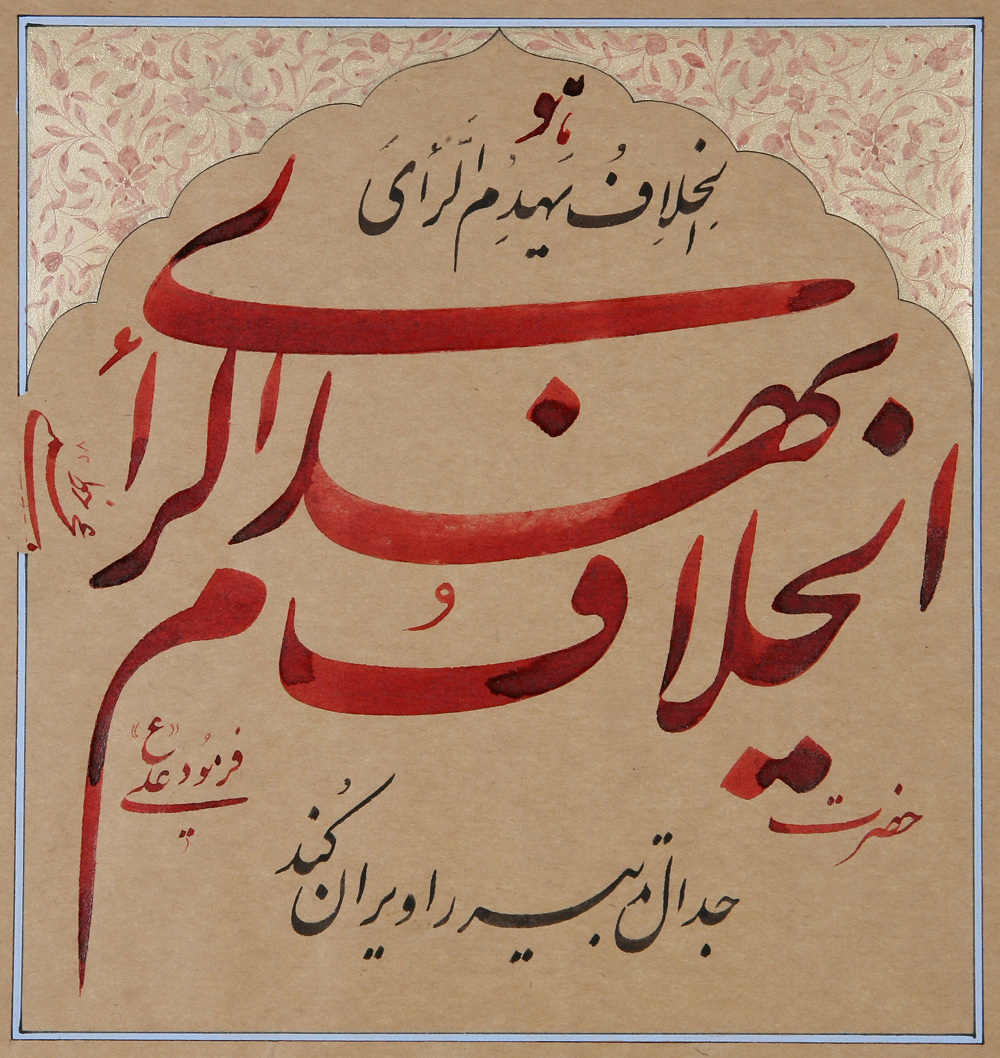 اَلخِلافُ یَهدِمُ الرَّأیَ
الخلافُ یهدم الرأی
حضرت
فرمُود علی «ع»
جدال تدبیر را ویران کُند